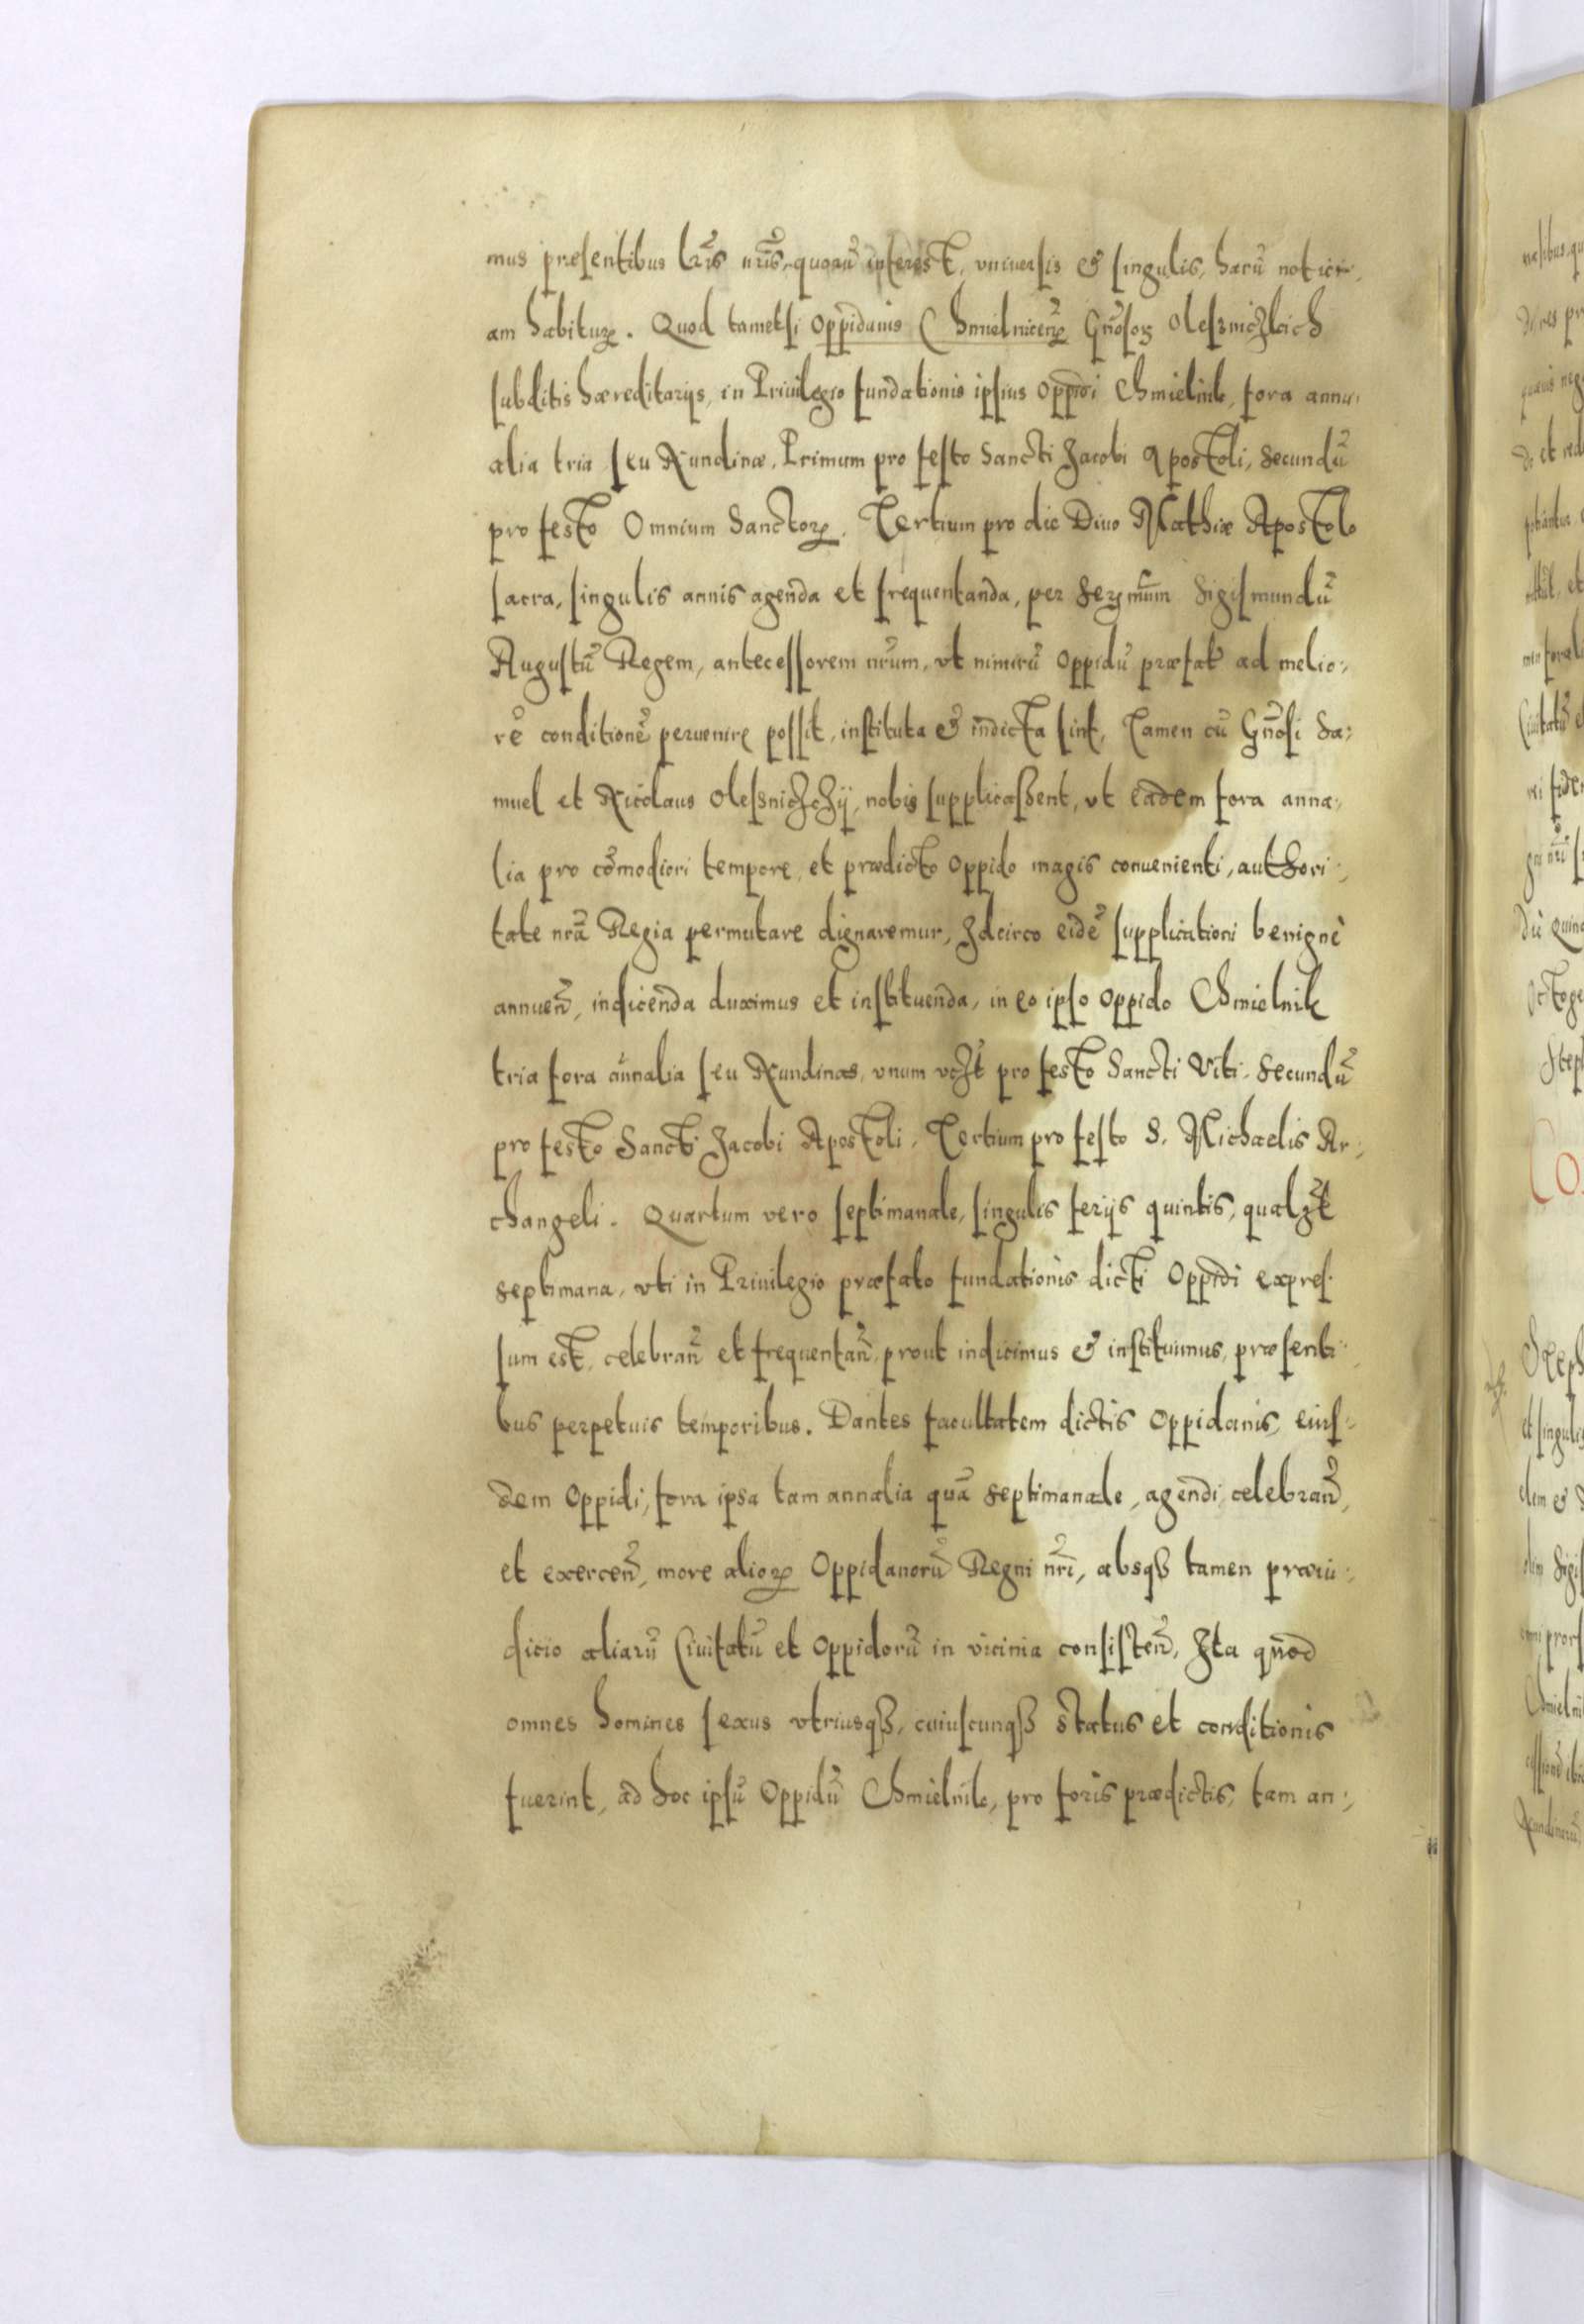 mus presentibus lr̃is nr̃is, quorũ interest, vniuersis & singulis, harũ notici-
am habituꝝ. Quod tametsi Oppidanis Chmielnicen̄ Gn̄osoꝝ Oleszniczkich
subditis hæreditarijs, in Priuilegio fundationis ipsius Oppidi Chmielnik, fora annu-
alia tria seu Nundinæ, Primum pro festo Sancti Jacobi Apostoli, Secundũ
pro festo Omnium Sanctoꝝ. Tertium pro die Diuo Mathiæ Apostolo
sacra, singulis annis agenda et frequentanda, per Serm̄um Sigismundũ
Augustũ Regem, antecessorem nr̃um, vt nimirũ Oppidũ præfat̃ ad melio-
rẽ conditionẽ peruenire possit, instituta & indicta sint, Tamen cũ Gn̄osi Sa-
muel et Nicolaus Olesniczczij, nobis supplicassent, vt eadem fora anna-
lia pro cõmodiori tempore, et prædicto Oppido magis conuenienti, authori-
tate nr̃a Regia permutare dignaremur, Idcirco eidẽ supplicationi benignè
annuen̄, indicenda duximus et instituenda, in eo ipso Oppido Chmielnik
tria fora annalia seu Nundinas, vnum vcʒt pro festo Sancti Viti. Secundũ
pro festo Sancti Jacobi Apostoli. Tertium pro festo S. Michaelis Ar-
changeli. Quartum vero septimanale, singulis ferijs quintis, qualʒt
septimana, vti in Priuilegio præfato fundationis dicti Oppidi expres-
sum est, celebran̄ et frequentan̄, prout indicimus & instituimus, præsenti-
bus perpetuis temporibus. Dantes facultatem dictis Oppidanis, eius-
dem Oppidi, fora ipsa tam annalia quã septimanale, agendi, celebran̄,
et exercen̄, more alioꝝ Oppidanorũ Regni nr̃i, absqʒ tamen præiu-
dicio aliarũ Ciuitatũ et Oppidorũ in vicinia consisten̄, Ita quod
omnes homines sexus vtriusqʒ, cuiuscunqʒ status et conditionis
fuerint, ad hoc ipsũ Oppidũ Chmielnik, pro foris prædictis, tam an-